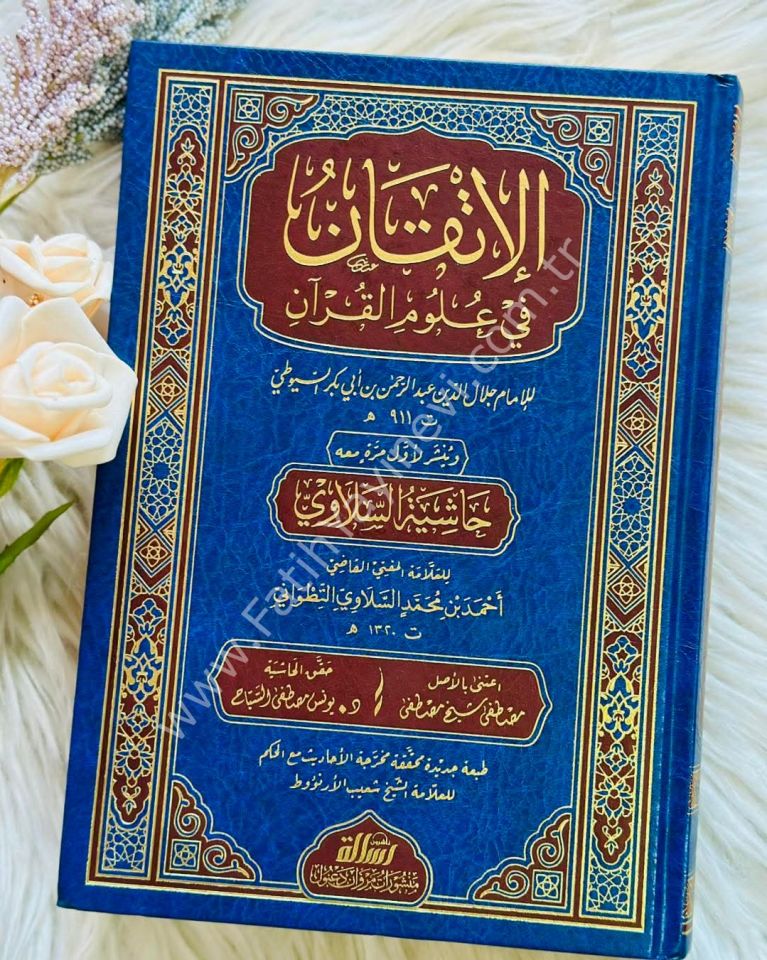 الإتقان
في علوم القرآن
للإمام جلال الدين عبد الرحمن بن أبي بكر السيوطي
ت ٩١١ هـ
وينشر لأول مرة معه
حاشية السلاوي
للعلامة المفتي القاضي
أحمد بن محمد السلاوي التطواني
ت ١٣٢٠ هـ
اعتنى بالأصل
مصطفى شيخ مصطفى
حقق الحاشية
د. يونس مصطفى السباح
طبعة جديدة محققة مخرجة الأحاديث مع الحكم
للعلامة الشيخ شعيب الأرنؤوط
رسالة
ناشرون
منشورات مروان دعبول
www.Fatihyayinevi.com.tr